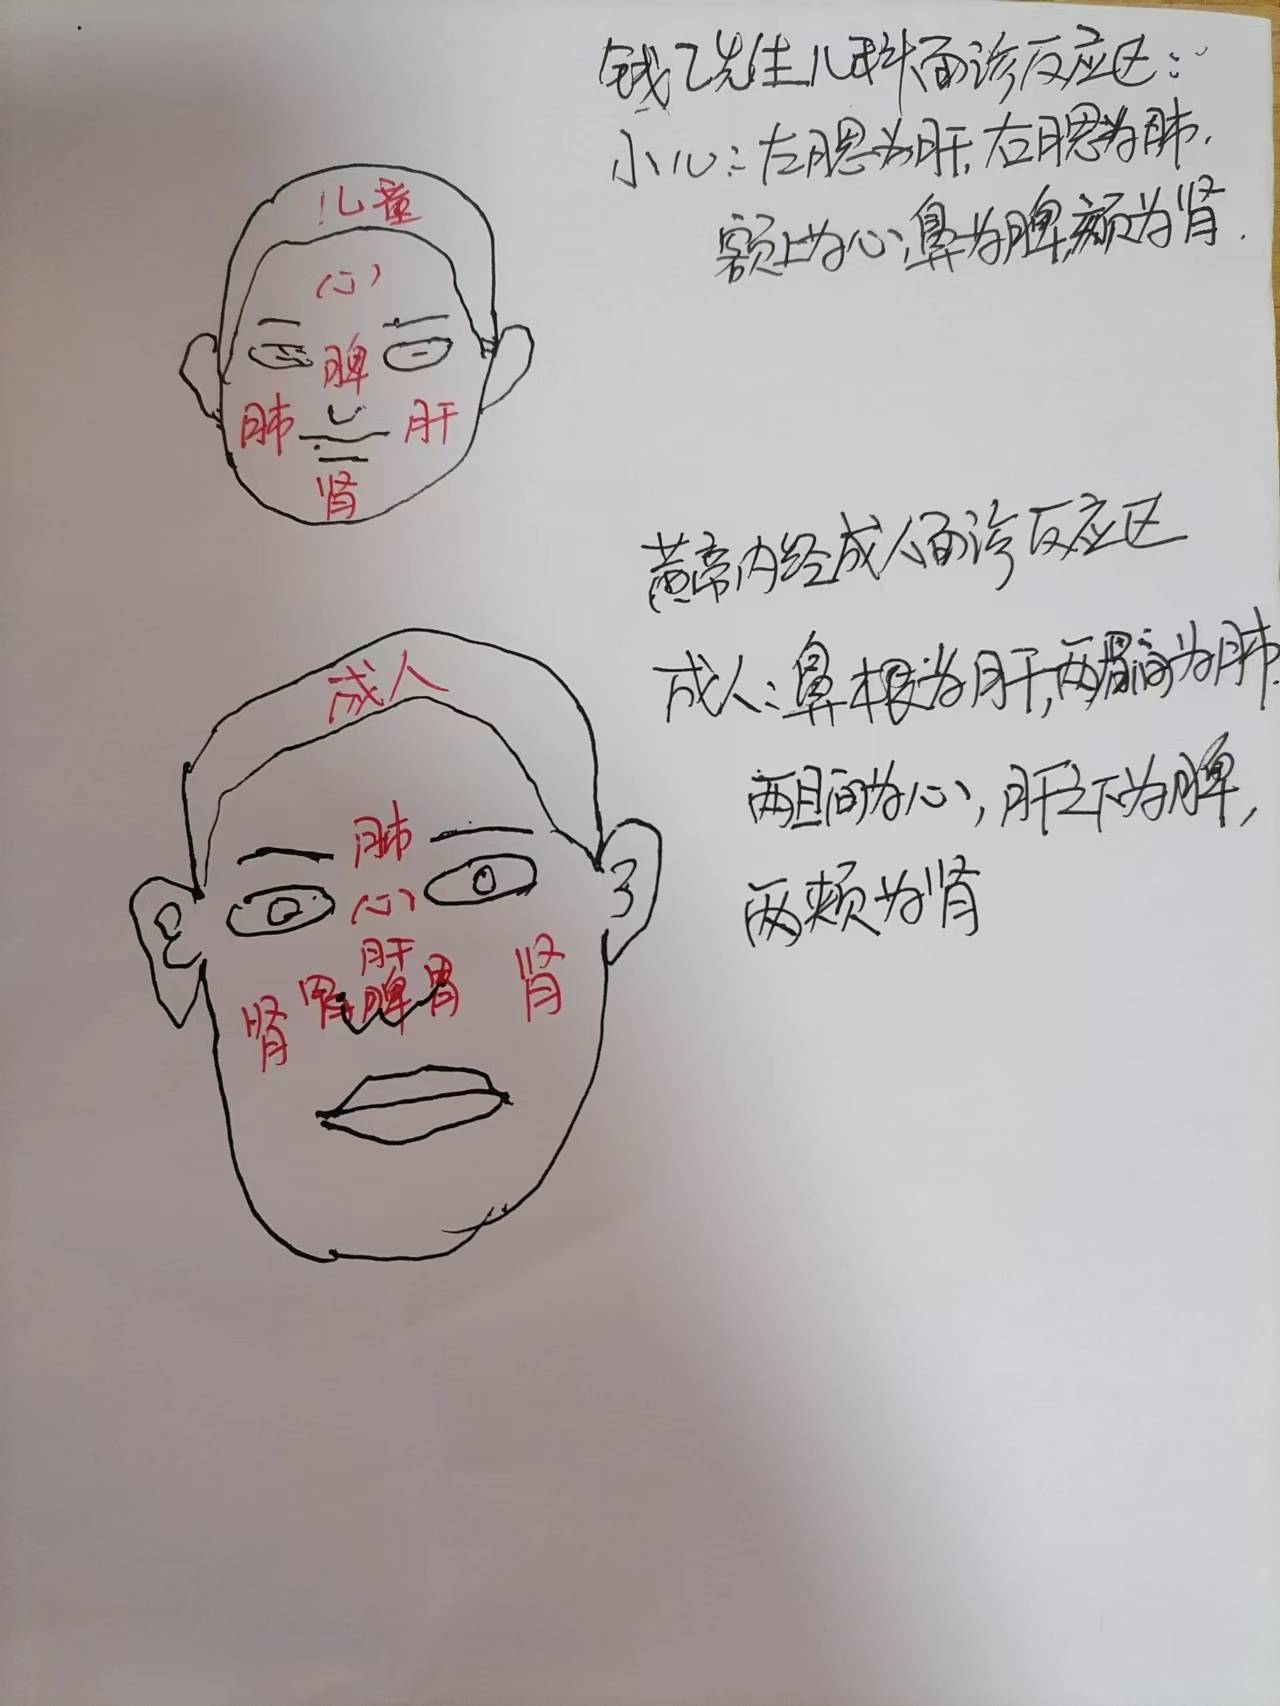 钱乙先生儿科面诊反应区:
小儿:左腮为肝,右腮为肺.
额上为心,鼻为脾,颏为肾.
儿童
心
脾
肺 肝
肾
黄帝内经成人面诊反应区
成人:鼻根为肝,两眉间为肺.
两目间为心,肝之下为脾,
两颊为肾
成人
肺
心
肝
肾 胃 脾 胃 肾